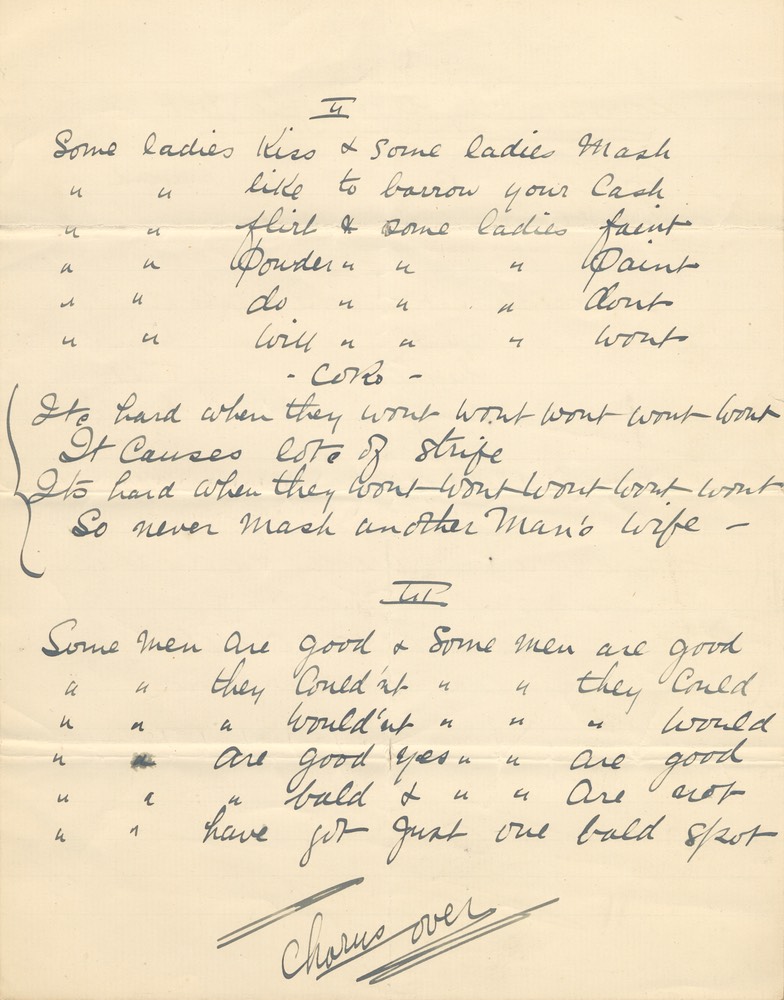 II
Some ladies Kiss & Some ladies Mash
" " like to borrow your Cash
" " flirt & some ladies faint
" " Powder " " " Paint
" " do " " " dont
" " Will " " " wont
- CoRo -
Its hard when they wont wont wont wont wont
It Causes lots of strife
Its hard when they wont wont wont wont wont
So never Mash another Man's Wife -
III
Some men are good & Some men are good
" " they Could'nt " " they Could
" " " Would'nt " " " Would
" " are good yes " " are good
" " " bald & " " are not
" " have got Just one bald spot
Chorus over